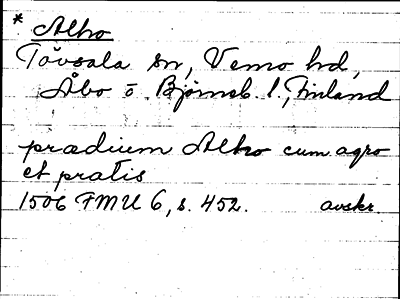 * Alho
Tövsala sn, Vemo hd,
Åbo o. Björneb. l., Finland
prædium Alho cum agro
et pratis
1506 FMU 6, s. 452. avskr